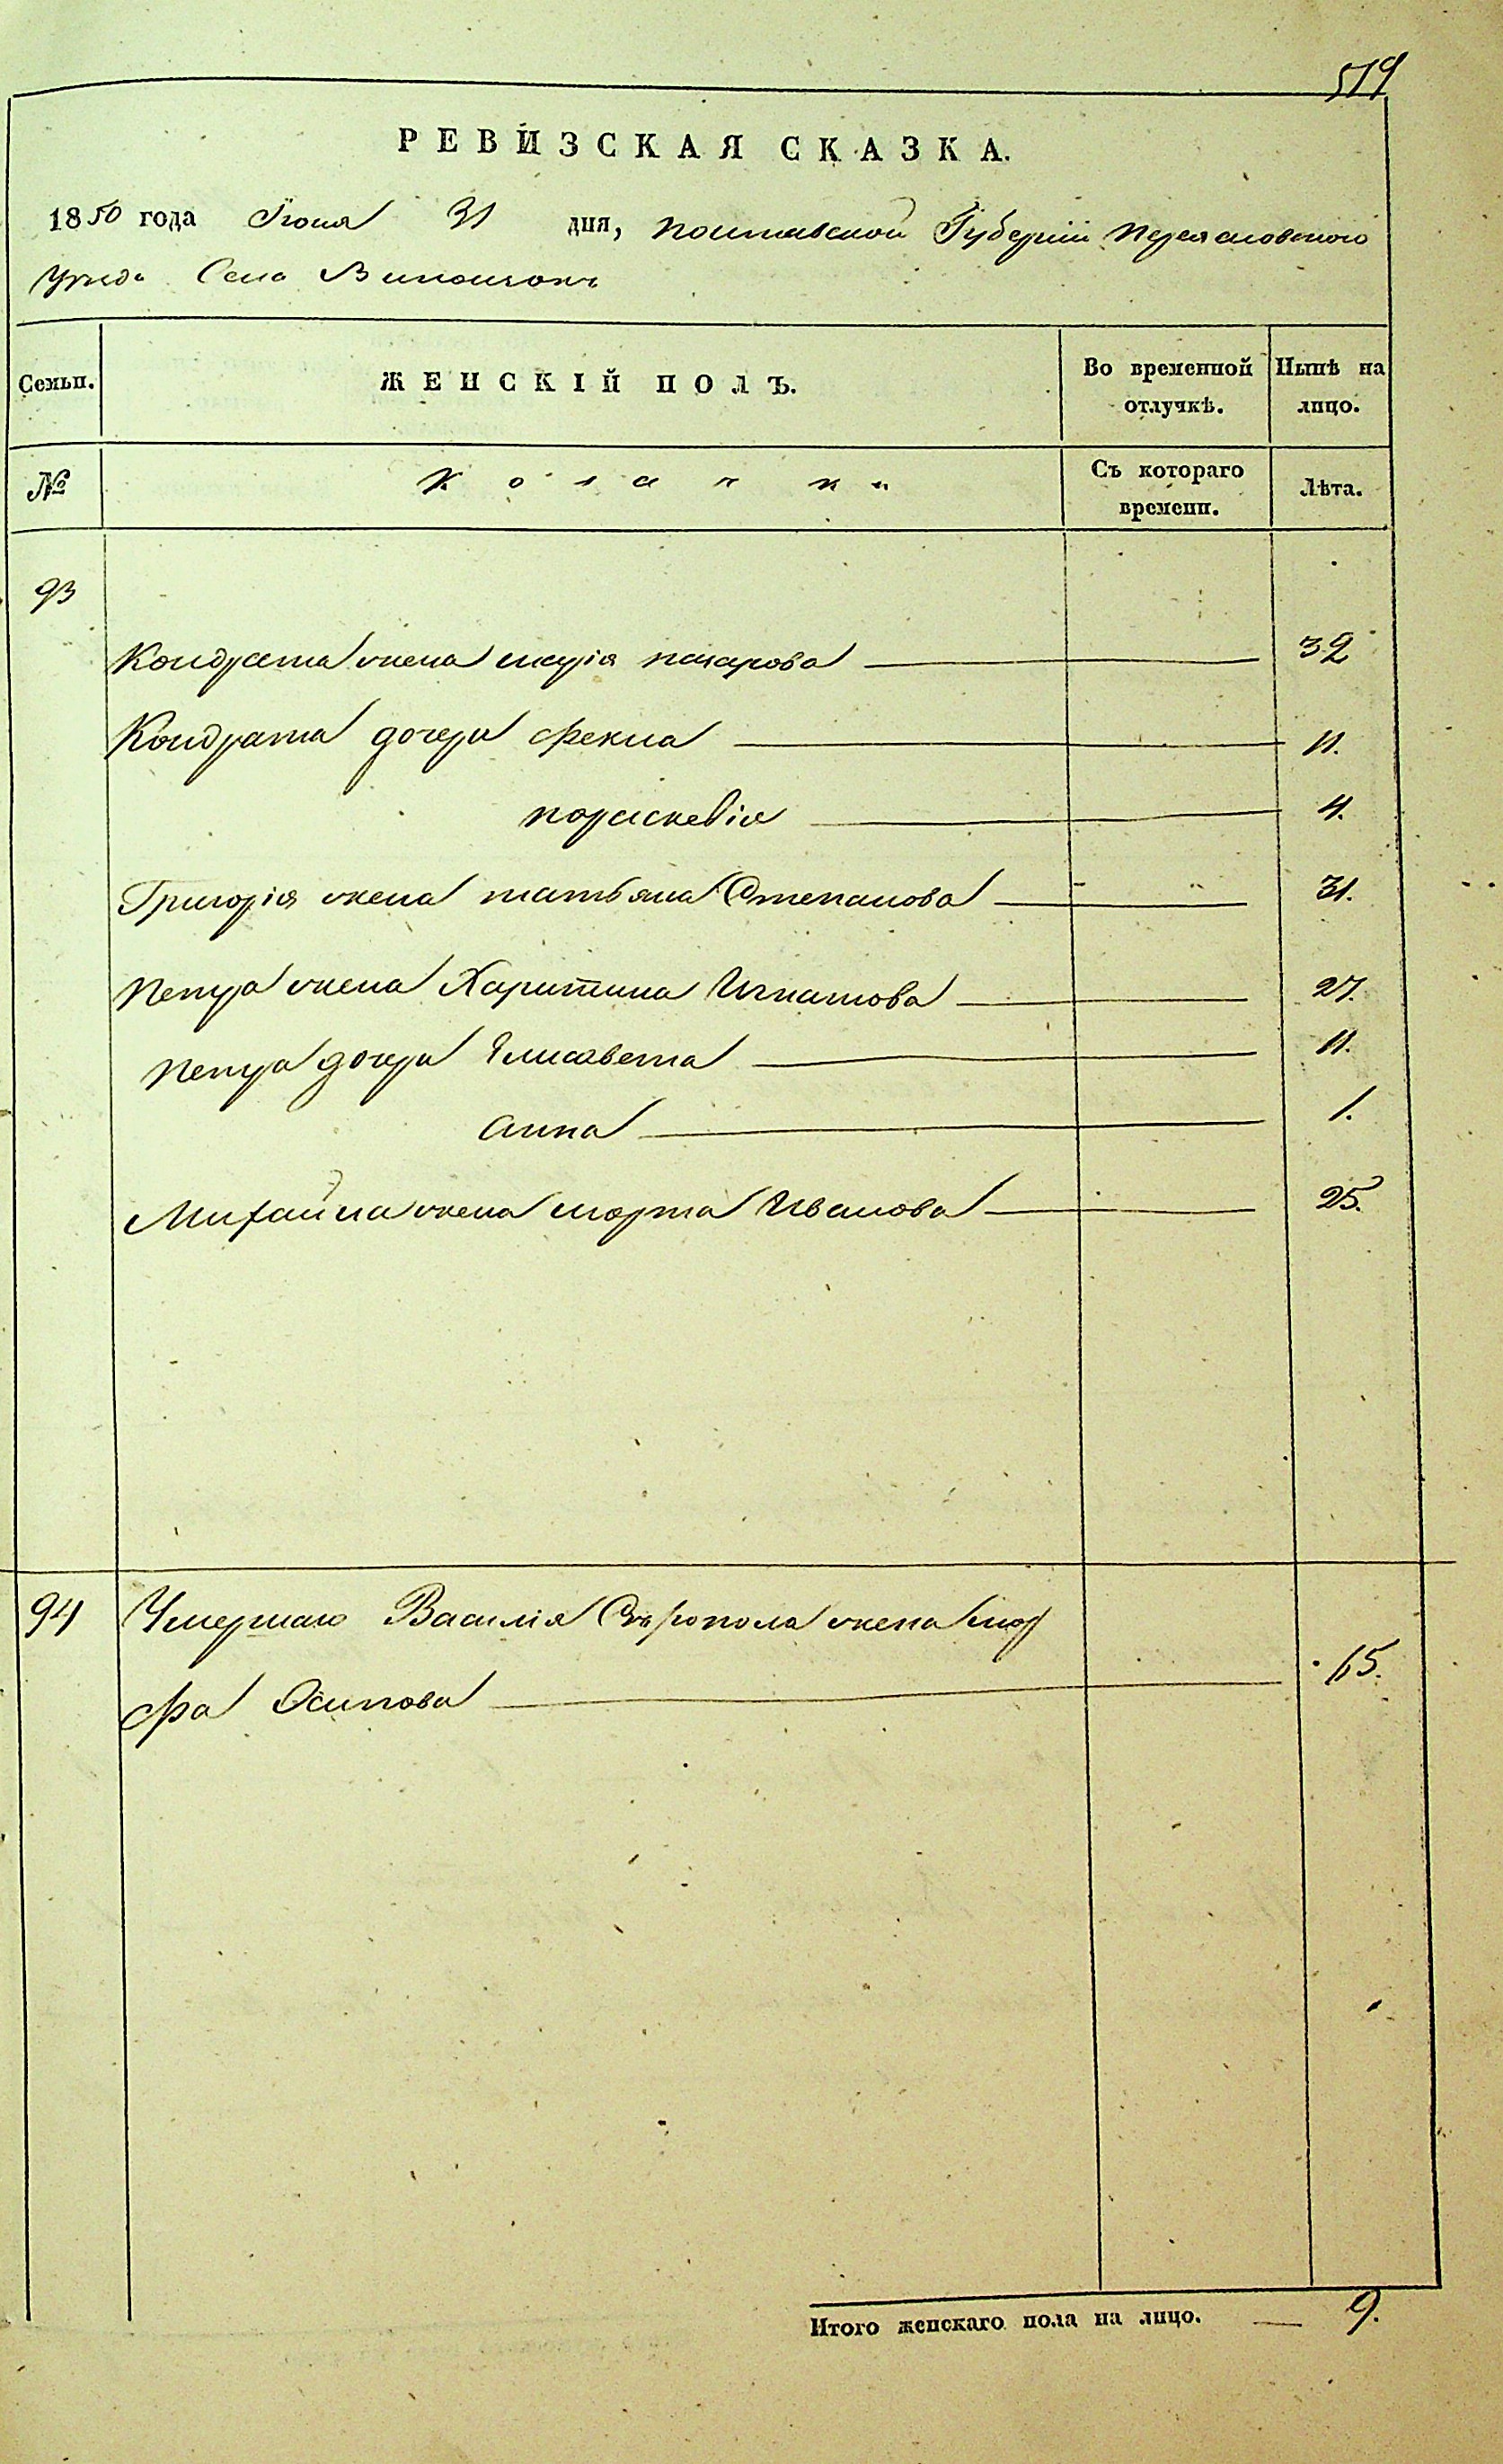 519
РЕВИЗСКАЯ СКАЗКА.
1850 года Іюня 31 дня, полтавской Губерніи Переясловского
Уезда Села
Семьи. ЖЕНСКІЙ ПОЛЪ. Во временной отлучкѣ. Нынѣ на лицо.
№ Козачки Съ котораго времени. Лѣта.
93
Кондрата жена марія 32
Кондрата дочери Фекла 11.
параскевія 4.
Григорія жена татьяна Степанова 31.
петра жена Харитина Игнатова 27.
петра дочери Елисавета 11.
анна 1.
Михайла жена марта Иванова 25.
94 Умершаго Василія жена мар
фа Осипова 65.
Итого женскаго пола на лицо. — 9.